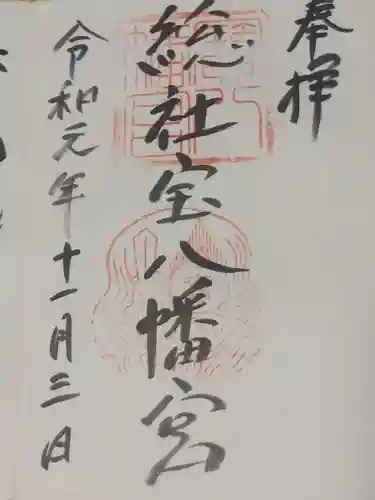 奉拝
総社宝八幡宮
令和元年十一月三日